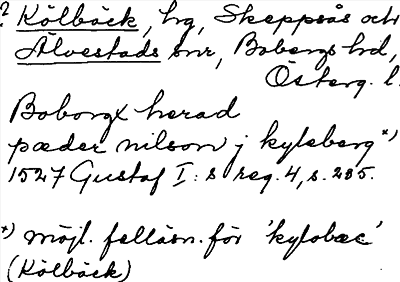 ? Kölbäck, hg, Skeppsås och
Älvestads snr, Bobergs hd,
Österg. l.
Boborgx herad
pæder nilson j kyleberg *)
1527 Gustaf I:s reg. 4, s. 285.
*) möjl. felläsn. för 'kylobæc'
(Kölbäck)